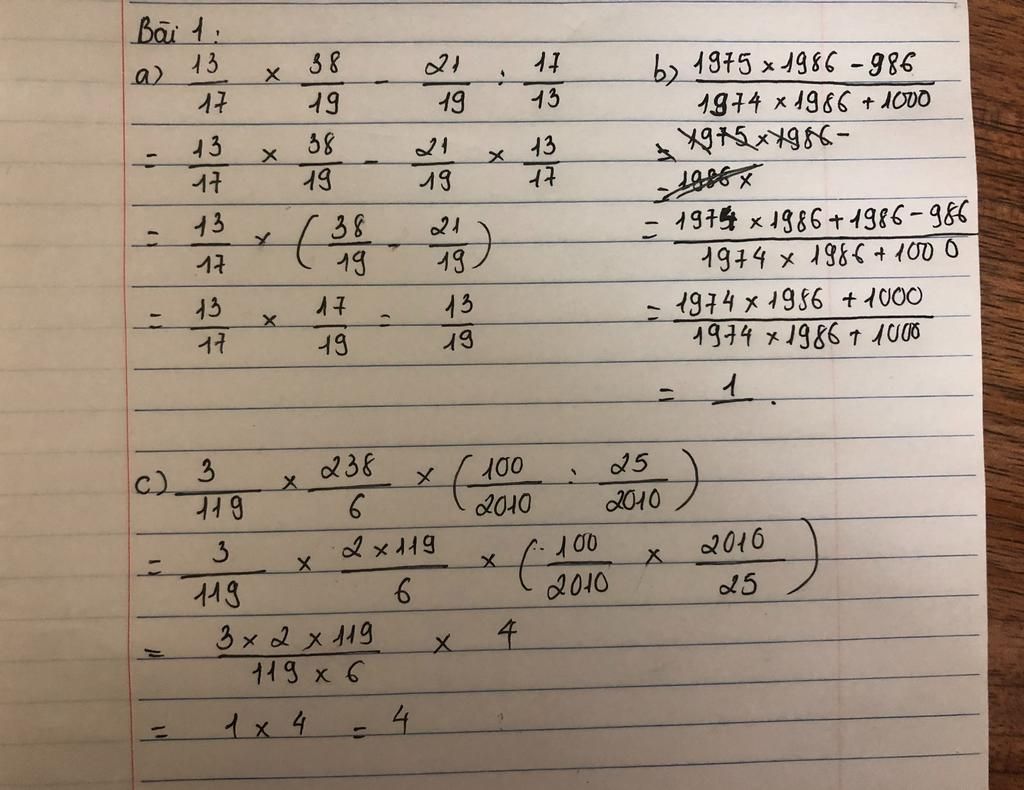 Bài 1:
a) 13/17 × 38/19 - 21/19 : 17/13
= 13/17 × 38/19 - 21/19 × 13/17
= 13/17 × (38/19 - 21/19)
= 13/17 × 17/19 = 13/19
b) 1975 × 1986 - 986 / 1974 × 1986 + 1000
= 1975 × 1986 -
= 1986 ×
= 1974 × 1986 + 1986 - 986 / 1974 × 1986 + 1000
= 1974 × 1986 + 1000 / 1974 × 1986 + 1000
= 1.
c) 3/119 × 238/6 × (100/2010 : 25/2010)
= 3/119 × 2 × 119/6 × (100/2010 × 2010/25)
= 3 × 2 × 119 / 119 × 6 × 4
= 1 × 4 = 4